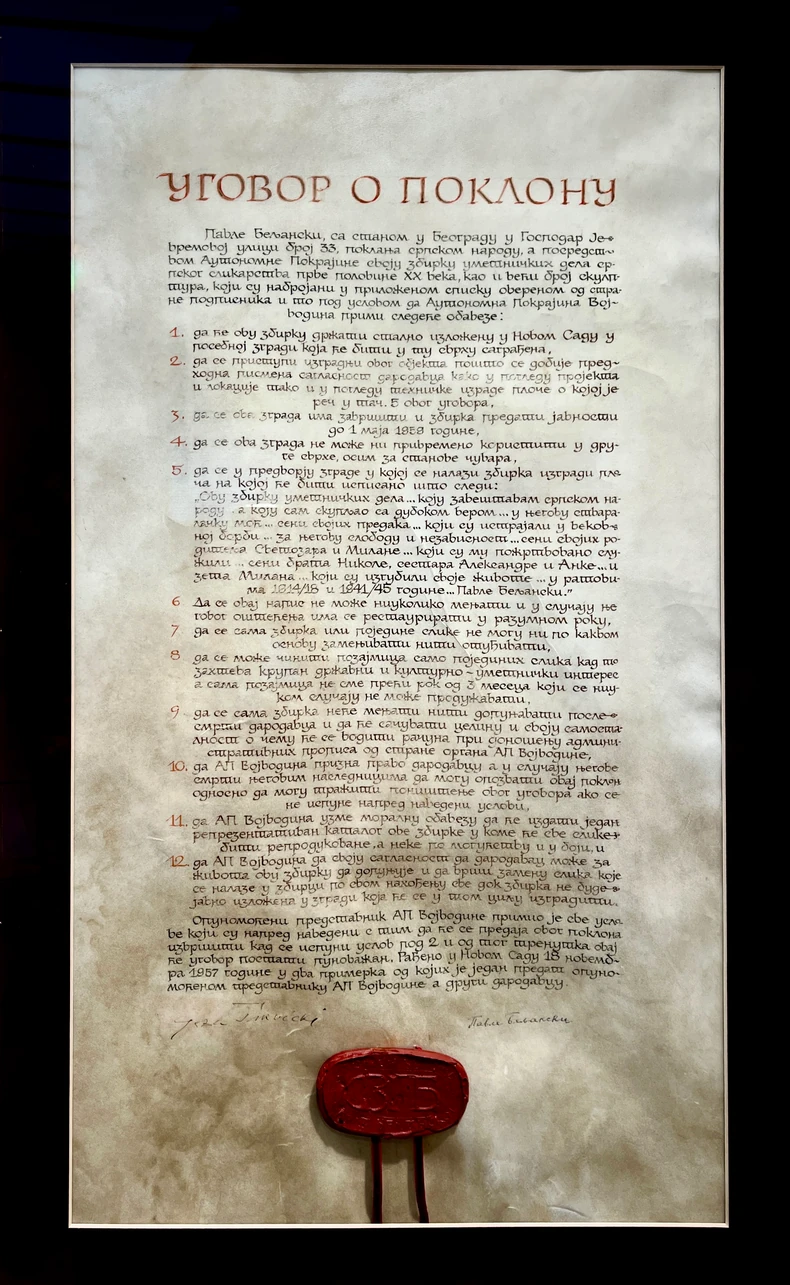 УГОВОР О ПОКЛОНУ
Павле Бељански, са станом у Београду у Господар Је-
времовој улици број 33, поклања српском народу, а посредст-
вом Аутономне Покрајине своју збирку уметничких дела ср-
пског сликарства прве половине XX века, као и већи број скулп-
тура, који су набројани у приложеном списку овереном од стра-
не подписника и то под условом да Аутономна Покрајина Вој-
водина прими следеће обавезе:
1. да ће ову збирку држати стално изложену у Новом Саду у
посебној згради која ће бити у ту сврху саграђена,
2. да се приступи изградњи овог објекта пошто се добије пред-
ходна писмена сагласност дародавца како у погледу пројекта
и локације тако и у погледу техничке израде плоче о којој је
реч у тач. 5 овог уговора,
3. да се ова зграда има завршити и збирка предати јавности
до 1 маја 1959 године,
4. да се ова зграда не може ни привремено користити у дру-
ге сврхе, осим за станове чувара,
5. да се у предворју зграде у којој се налази збирка изгради пло
ча на којој ће бити исписано што следи:
„Ову збирку уметничких дела... коју завештавам српском на-
роду а коју сам скупљао са дубоком вером... у његову ствара-
лачку моћ... сени својих предака... који су истрајали у веков-
ној борби... за његову слободу и независност... сени својих ро-
дитеља Светозара и Милане... који су му пожртвовано слу-
жили... сени брата Николе, сестара Александре и Анке... и
зета Милана... који су изгубили своје животе... у ратови-
ма 1914/18 и 1941/45 године... Павле Бељански."
6 Да се овај напис не може ниуколико мењати и у случају ње
говог оштећења има се рестаурирати у разумном року,
7 да се сама збирка или поједине слике не могу ни по каквом
основу замењивати нити отуђивати,
8 да се може чинити позајмица само појединих слика кад то
захтева крупан државни и културно-уметнички интерес
а сама позајмица не сме прећи рок од 3 месеца који се ниу-
ком случају не може продужавати,
9 да се сама збирка неће мењати нити допуњавати после
смрти дародавца и да ће сачувати целину и своју самоста-
лност о чему ће се водити рачуна при доношењу админи-
стративних прописа од стране органа АП Војводине,
10. да АП Војводина призна право дародавцу а у случају његове
смрти његовим наследницима да могу опозвати овај поклон
односно да могу тражити поништење овог уговора ако се
не испуне напред наведени услови,
11. да АП Војводина узме моралну обавезу да ће издати један
репрезентативан каталог ове збирке у коме ће све слике
бити репродуковане, а неке по могућству и у боји, и
12. да АП Војводина да своју сагласност да дародавац може за
живота ову збирку да допуњује и да врши замену слика које
се налазе у збирци по свом нахођењу све док збирка не буде
јавно изложена у згради која ће се у том циљу изградити.
Опуномоћени представник АП Војводине примио је све усло
ве који су напред наведени с тим да ће се предаја овог поклона
извршити кад се испуни услов под 2 и од тог тренутка овај
ће уговор постати пуноважан. Рађено у Новом Саду 18 новемб-
ра 1957 године у два примерка од којих је један предат опуно-
моћеном представнику АП Војводине а други дародавцу.
Павле Бељански